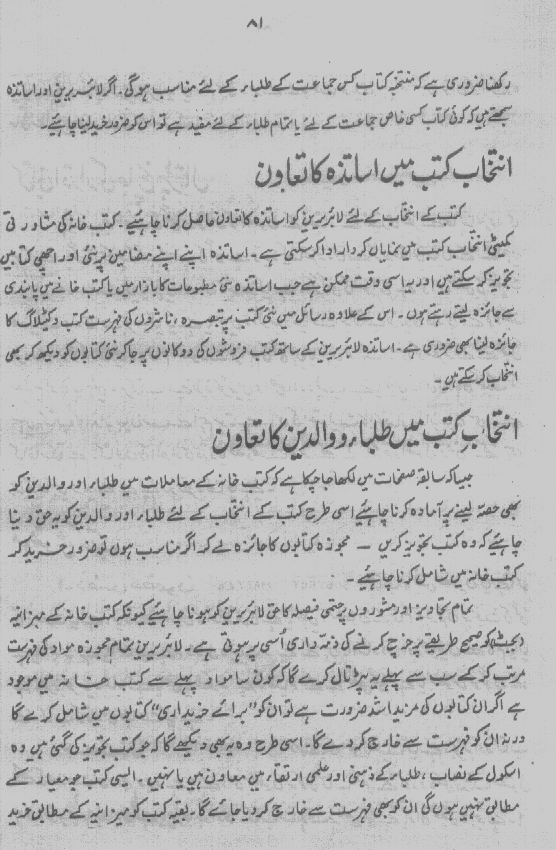 ۸۱
رکھنا ضروری ہے کہ منتخبہ کتاب کس جماعت کے طلباء کے لئے مناسب ہوگی۔ اگر لائبریرین اور اساتذہ
سمجھتے ہیں کہ کوئی کتاب کسی خاص جماعت کے لئے یا تمام طلباء کے لئے مفید ہے تو اس کو ضرور خرید لینا چاہیئے۔
انتخاب کتب میں اساتذہ کا تعاون
کتب کے انتخاب کے لئے لائبریرین کو اساتذہ کا تعاون حاصل کرنا چاہیئے۔ کتب خانہ کی مشاورتی
کمیٹی انتخاب کتب میں نمایاں کردار ادا کر سکتی ہے۔ اساتذہ اپنے اپنے مضامین پر نئی اور اچھی کتابیں
تجویز کر سکتے ہیں اور یہ اسی وقت ممکن ہے جب اساتذہ نئی مطبوعات کا بازار میں یا کتب خانے میں پابندی
سے جائزہ لیتے رہتے ہوں۔ اس کے علاوہ رسائل میں نئی کتب پر تبصرہ، ناشروں کی فہرست کتب و کیٹلاگ کا
جائزہ لینا بھی ضروری ہے۔ اساتذہ لائبریرین کے ساتھ کتب فروشوں کی دوکانوں پر جا کر نئی کتابوں کو دیکھ کر بھی
انتخاب کر سکتے ہیں۔
انتخاب کتب میں طلباء و والدین کا تعاون
جیسا کہ سابقہ صفحات میں لکھا جا چکا ہے کہ کتب خانہ کے معاملات میں طلباء اور والدین کو
بھی حصہ لینے پر آمادہ کرنا چاہیئے اسی طرح کتب کے انتخاب کے لئے طلباء اور والدین کو یہ حق دینا
چاہیئے کہ وہ کتب تجویز کریں — مجوزہ کتابوں کا جائزہ لے کر اگر مناسب ہوں تو ضرور خرید کر
کتب خانہ میں شامل کرنا چاہیئے۔
تمام تجاویز اور مشوروں پر حتمی فیصلہ کا حق لائبریرین کو ہونا چاہیئے کیونکہ کتب خانہ کے میزانیہ
(بجٹ) کو صحیح طریقے پر خرچ کرنے کی ذمہ داری اُسی پر ہوتی ہے۔ لائبریرین تمام مجوزہ مواد کی فہرست
مرتب کر کے سب سے پہلے یہ پڑتال کرے گا کہ کون سا مواد پہلے سے کتب خانہ میں موجود
ہے اگر ان کتابوں کی مزید اشد ضرورت ہے تو ان کو "برائے خریداری" کتابوں میں شامل کرے گا
ورنہ ان کو فہرست سے خارج کر دے گا۔ اسی طرح وہ یہ بھی دیکھے گا کہ جو کتب تجویز کی گئی ہیں وہ
اسکول کے نصاب، طلباء کے ذہنی اور علمی ارتقاء میں معاون ہیں یا نہیں۔ ایسی کتب جو معیار کے
مطابق نہیں ہوں گی ان کو بھی فہرست سے خارج کر دیا جائے گا۔ بقیہ کتب کو میزانیہ کے مطابق خرید